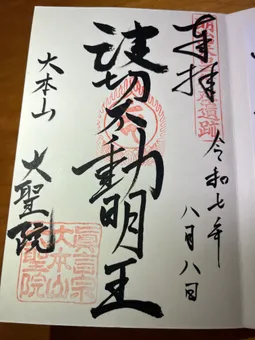 奉拝
令和七年
八月八日
波切不動明王
大本山
大聖院
眞言宗
大本山
大聖院